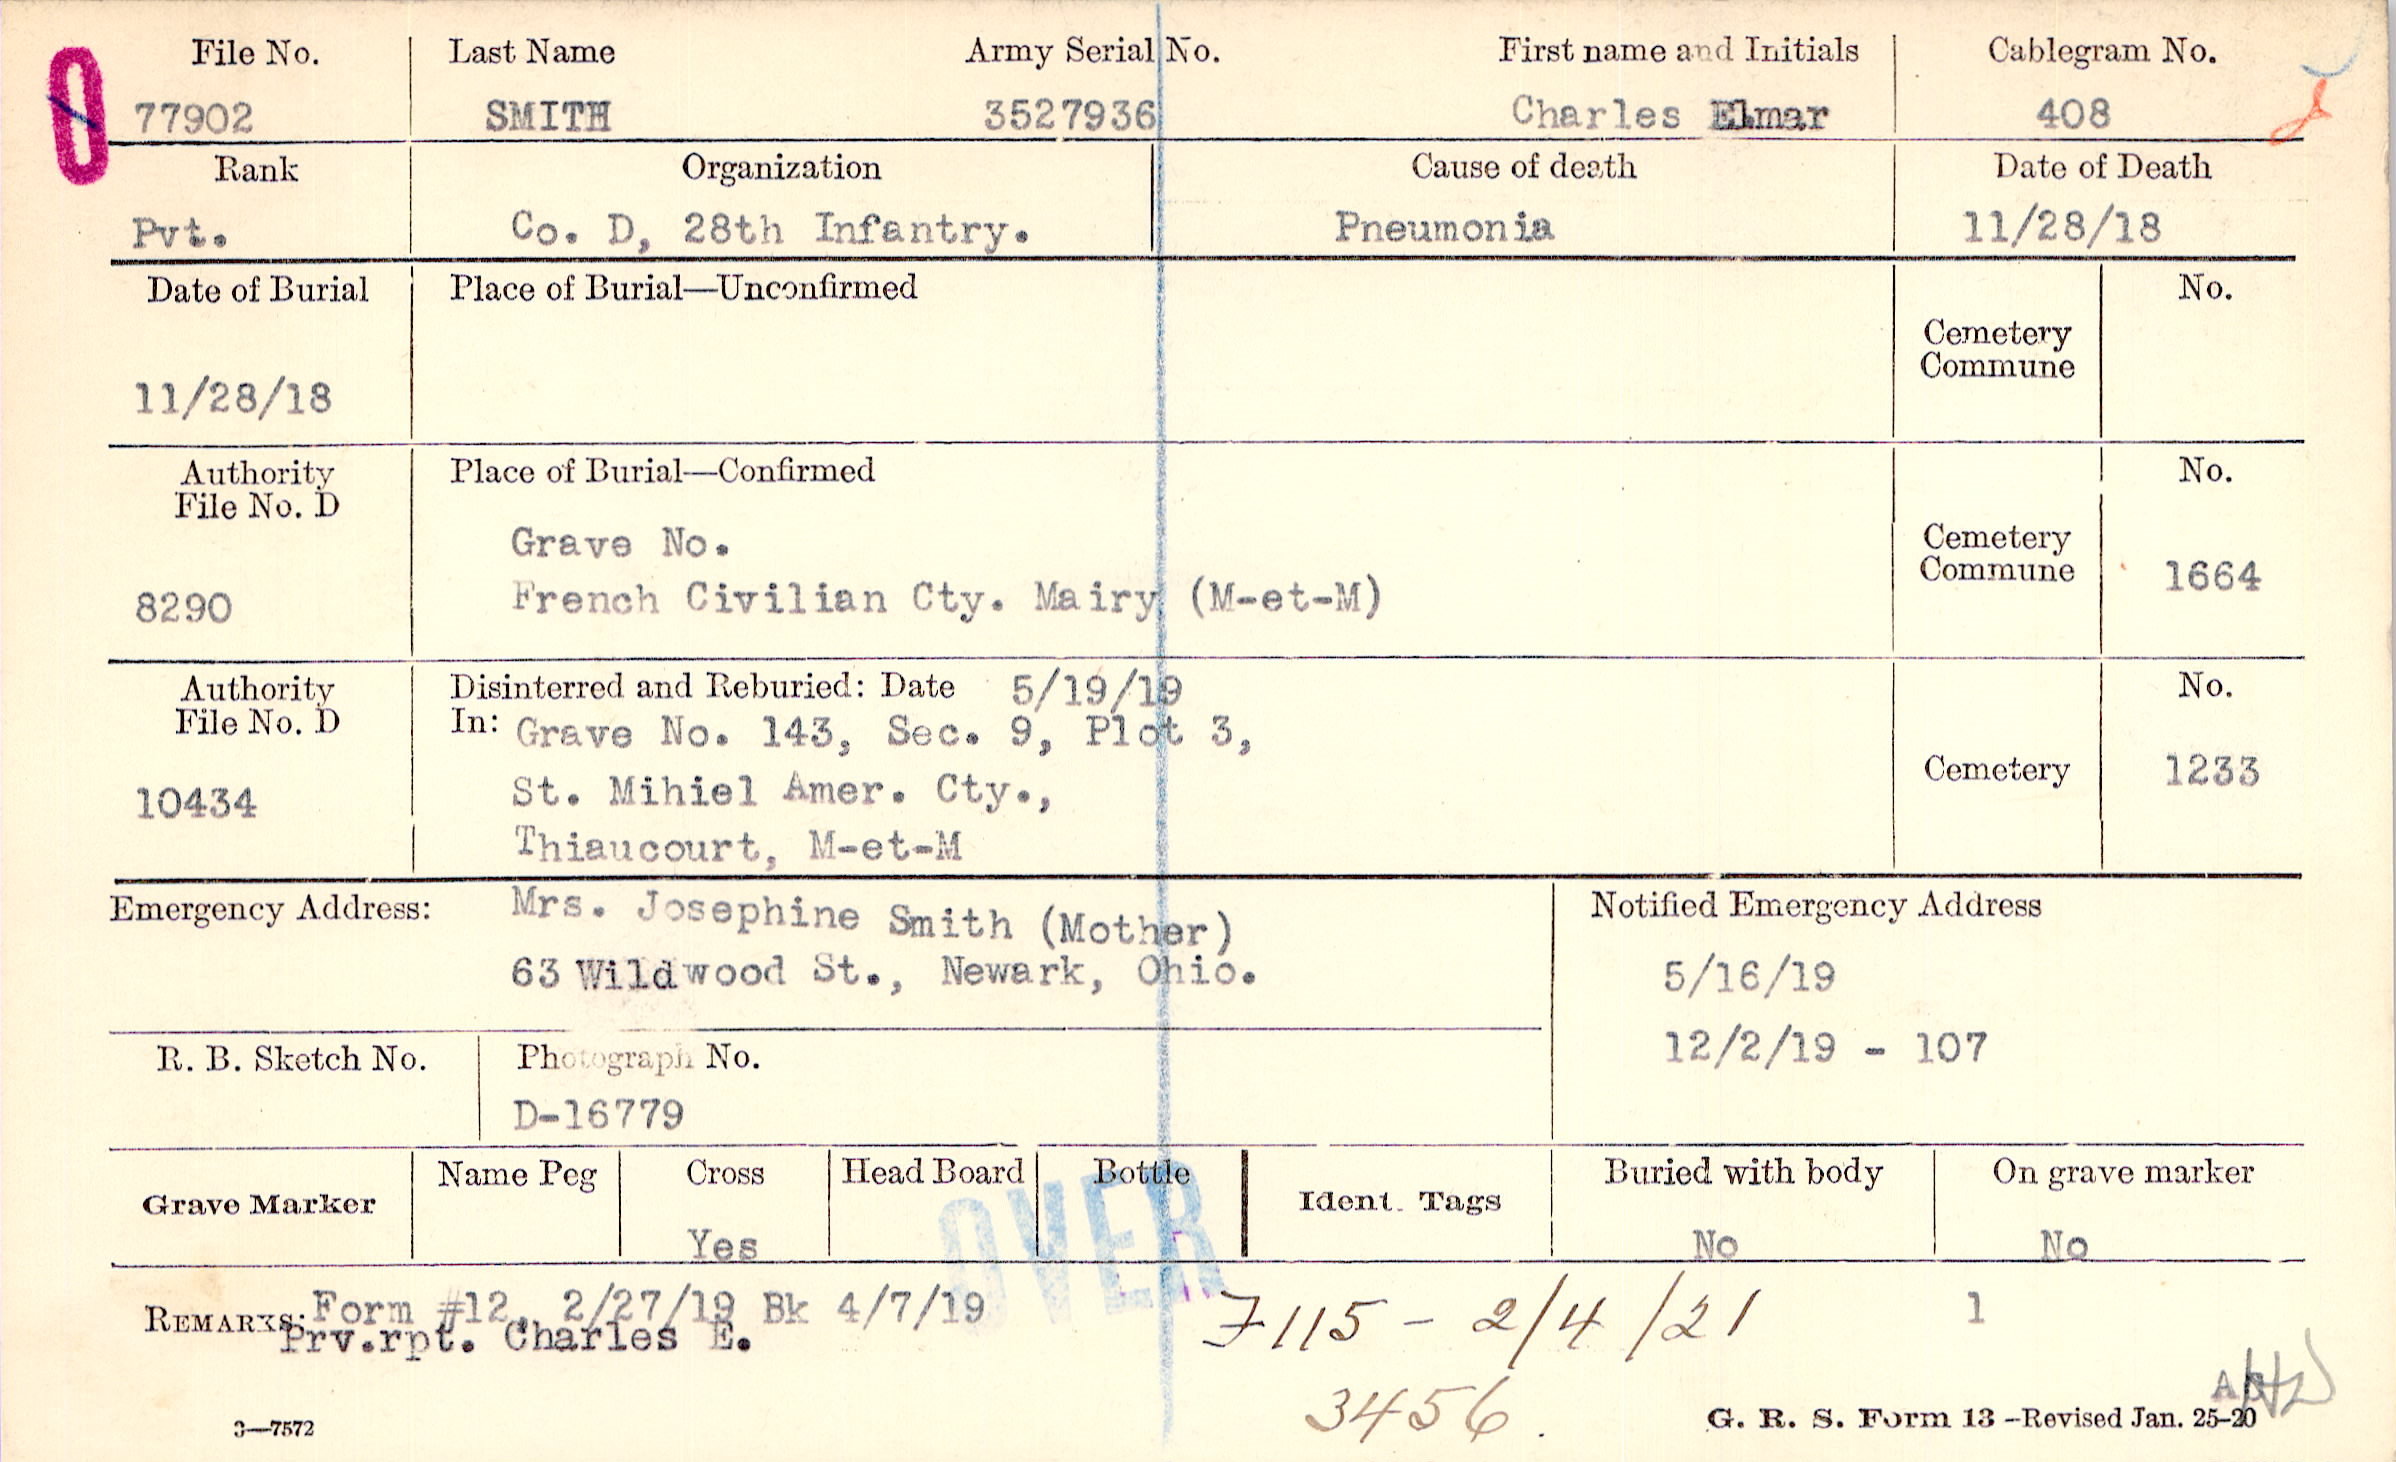 File No. Last Name Army Serial No. First name and Initials Cablegram No.
77902 SMITH 3527936 Charles Elmar 408
Rank Organization Cause of death Date of Death
Pvt. Co. D, 28th Infantry. Pneumonia 11/28/18
Date of Burial Place of Burial—Unconfirmed No.
Cemetery
Commune
11/28/18
Authority Place of Burial—Confirmed No.
File No. D
Grave No. Cemetery
Commune 1664
8290 French Civilian Cty. Mairy (M-et-M)
Authority Disinterred and Reburied: Date 5/19/19 No.
File No. D In: Grave No. 143, Sec. 9, Plot 3,
Cemetery 1233
10434 St. Mihiel Amer. Cty.,
Thiaucourt, M-et-M
Emergency Address: Mrs. Josephine Smith (Mother) Notified Emergency Address
63 Wildwood St., Newark, Ohio. 5/16/19
12/2/19 - 107
R. B. Sketch No. Photograph No.
D-16779
Grave Marker Name Peg Cross Head Board Bottle Ident. Tags Buried with body On grave marker
Yes No No
OVER
REMARKS: Form #12, 2/27/19 Bk 4/7/19 7115 - 2/4/21 1
Prv.rpt. Charles E.
3456.
3—7572 G. R. S. Form 13 -Revised Jan. 25-20